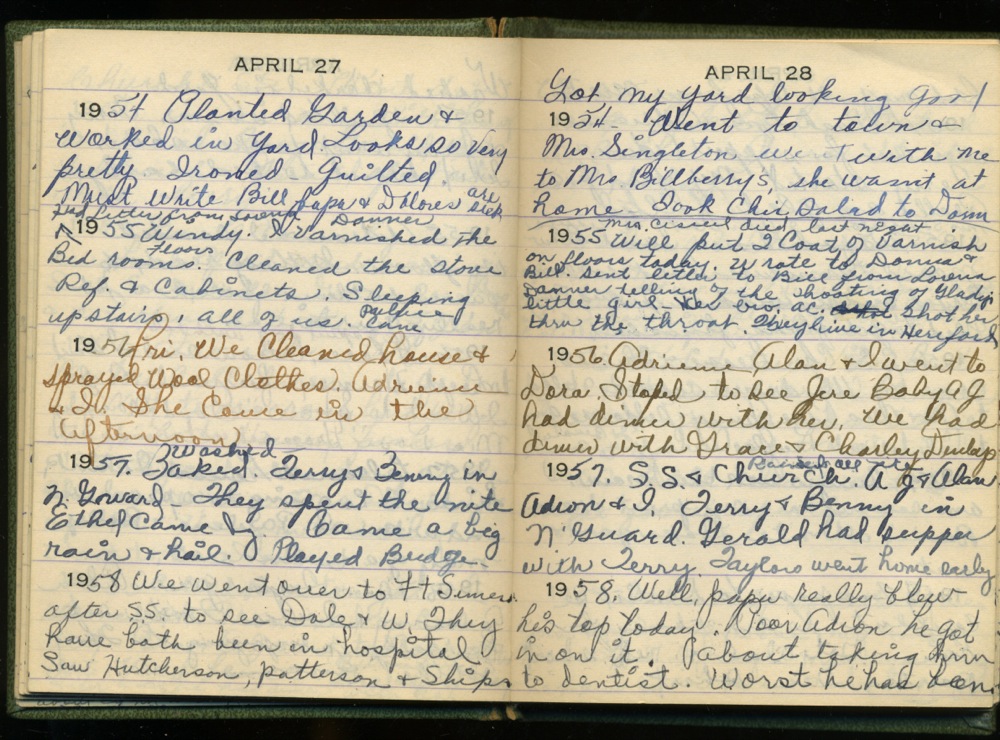 APRIL 27
1954 Planted Garden &
worked in Yard Looks so Very
pretty Ironed Quilted.
Must write Bill papa & Dolores are sick
Had letter from Lorena Danner
1955 Windy. I varnished the
Bed rooms. Floors Cleaned the stove
Ref. & Cabinets. Sleeping
upstairs, all of us. Came
1956 Fri. We Cleaned house &
sprayed Wool Clothes. Adrienne
& I. She Came in the
afternoon
1957. Washed Terry & Benny in
N. Guard. They spent the nite
Ethel Came by. Came a big
rain & hail. Played Bridge.
1958 We went over to Ft
after S.S. to see Dale & W. They
have both been in hospital
Saw Hutcherson, patterson & Ships
APRIL 28
Got my yard looking good
1954 - Went to town &
Mrs. Singleton went with me
to Mrs Billberrys, she wasnt at
home. Took Chic. Salad to Donn
Mrs. died last night
1955 Will put 2 Coat of Varnish
on floors today. Wrote to Donna &
Bill. sent letter to Bill from Lorena
Danner telling of the shooting of Gladys
little girl - Her bro. ac. shot her
thru the throat. They live in Hereford
1956. Adrienne, Alan & I went to
Dora. Stoped to see Jere Baby AJ
had dinner with her. We had
dinner with Grace & Charley Dunlap
Rained all nite
1957. S.S. & Church. A J & Alan
Adron & I. Terry & Benny in
N. Guard. Gerald had supper
with Terry. Taylors went home early
1958. Well, papa really blew
his top today. Poor Adron he got
in on it. About taking him
to dentist. Worst he has been.